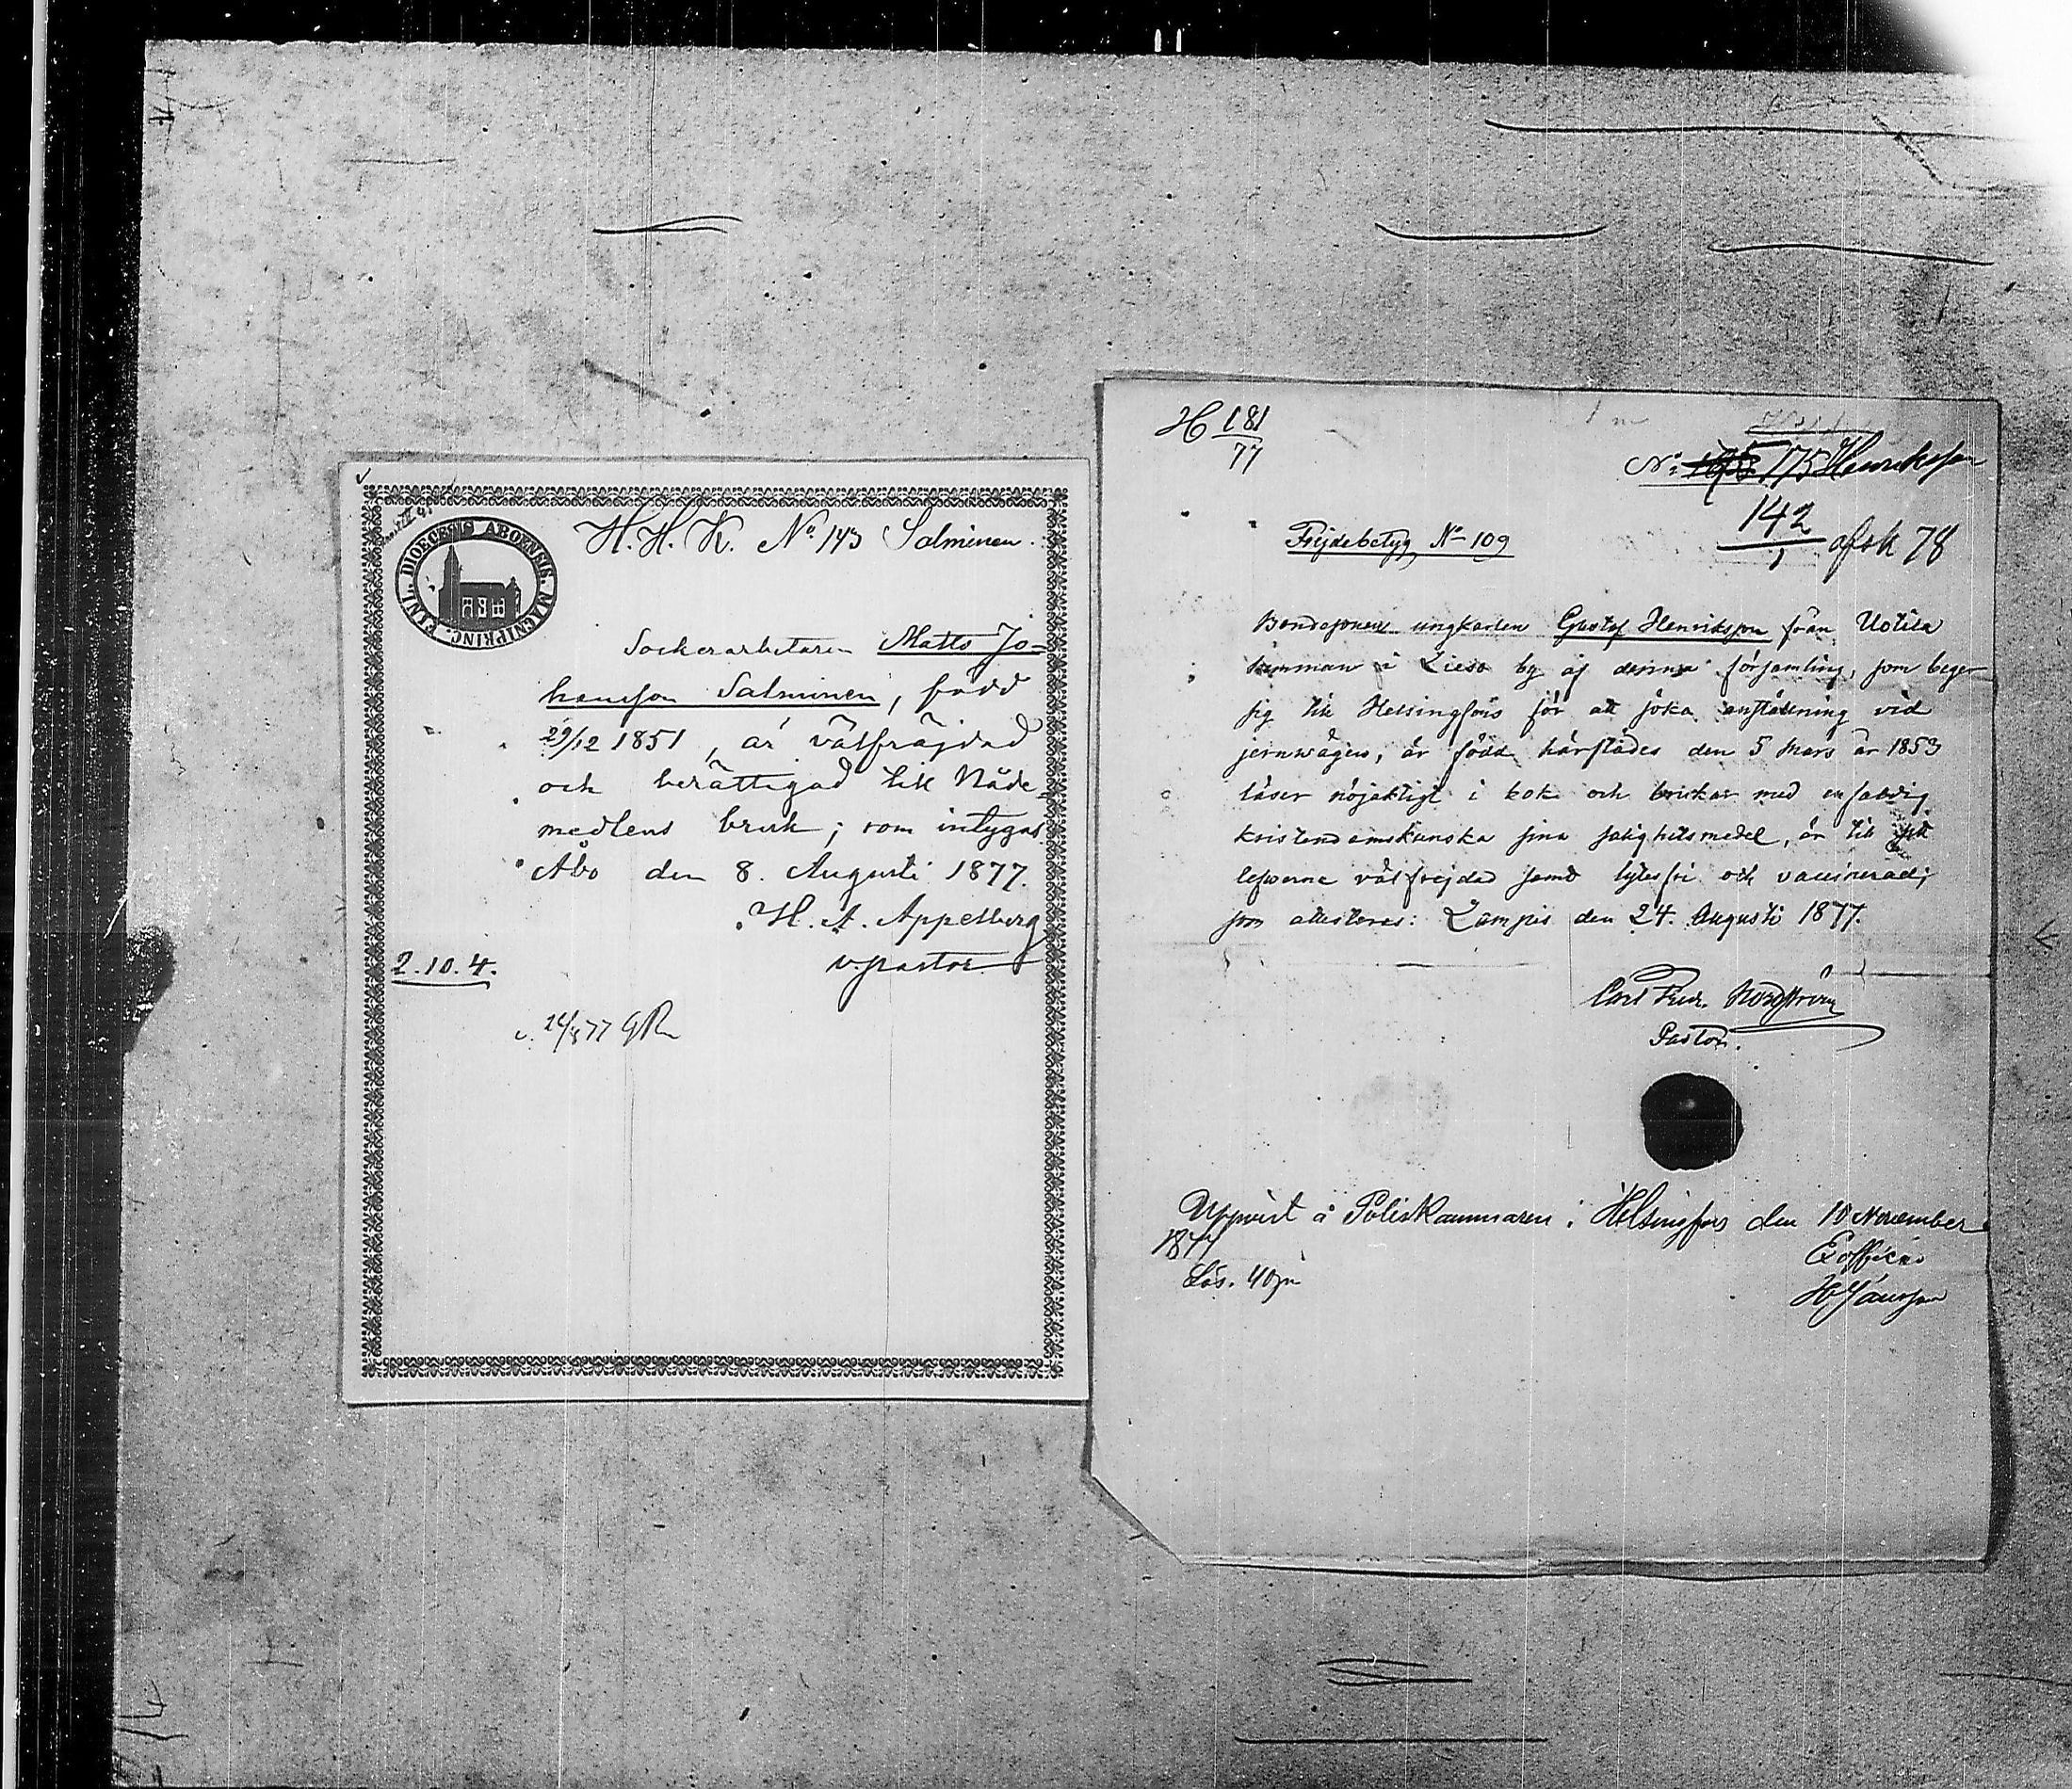 H. H. K. No 143 Salminen.
DIOECESIS ABOENSIS. MAGNI PRINC. FINL.
Sockerarbetaren Matts Jo-
hansson Salminen, född
29/12 1851, är välfräjdad
och berättigad till Nåde-
medlens bruk; som intygas
Åbo den 8. Augusti 1877.
H. A. Appelberg
v. pastor
2.10.4.
H 181
77
No 775 Henriksson
142
afsk 78
Frejdebetyg No 109
Bondesonen ungkarlen Gustaf Henriksson från Uotila
hemman i Lieso by af denna församling, som beger
sig till Helsingfors för att söka anställning vid
jernwägen, är född härstädes den 5 Mars år 1853
läser nöjaktigt i bok och brukar med enfaldig
kristendomskunska sina salighetsmedel, är till sitt
lefwerne välfrejdad samt lytesfri och vaccinerad;
som attesteras: Lampis den 24. Augusti 1877.
Carl Fredr. Nordström
Pastor.
Uppvist å Poliskammaren i Helsingfors den 10 November
1877
Ex officio
Lös. 40 pi